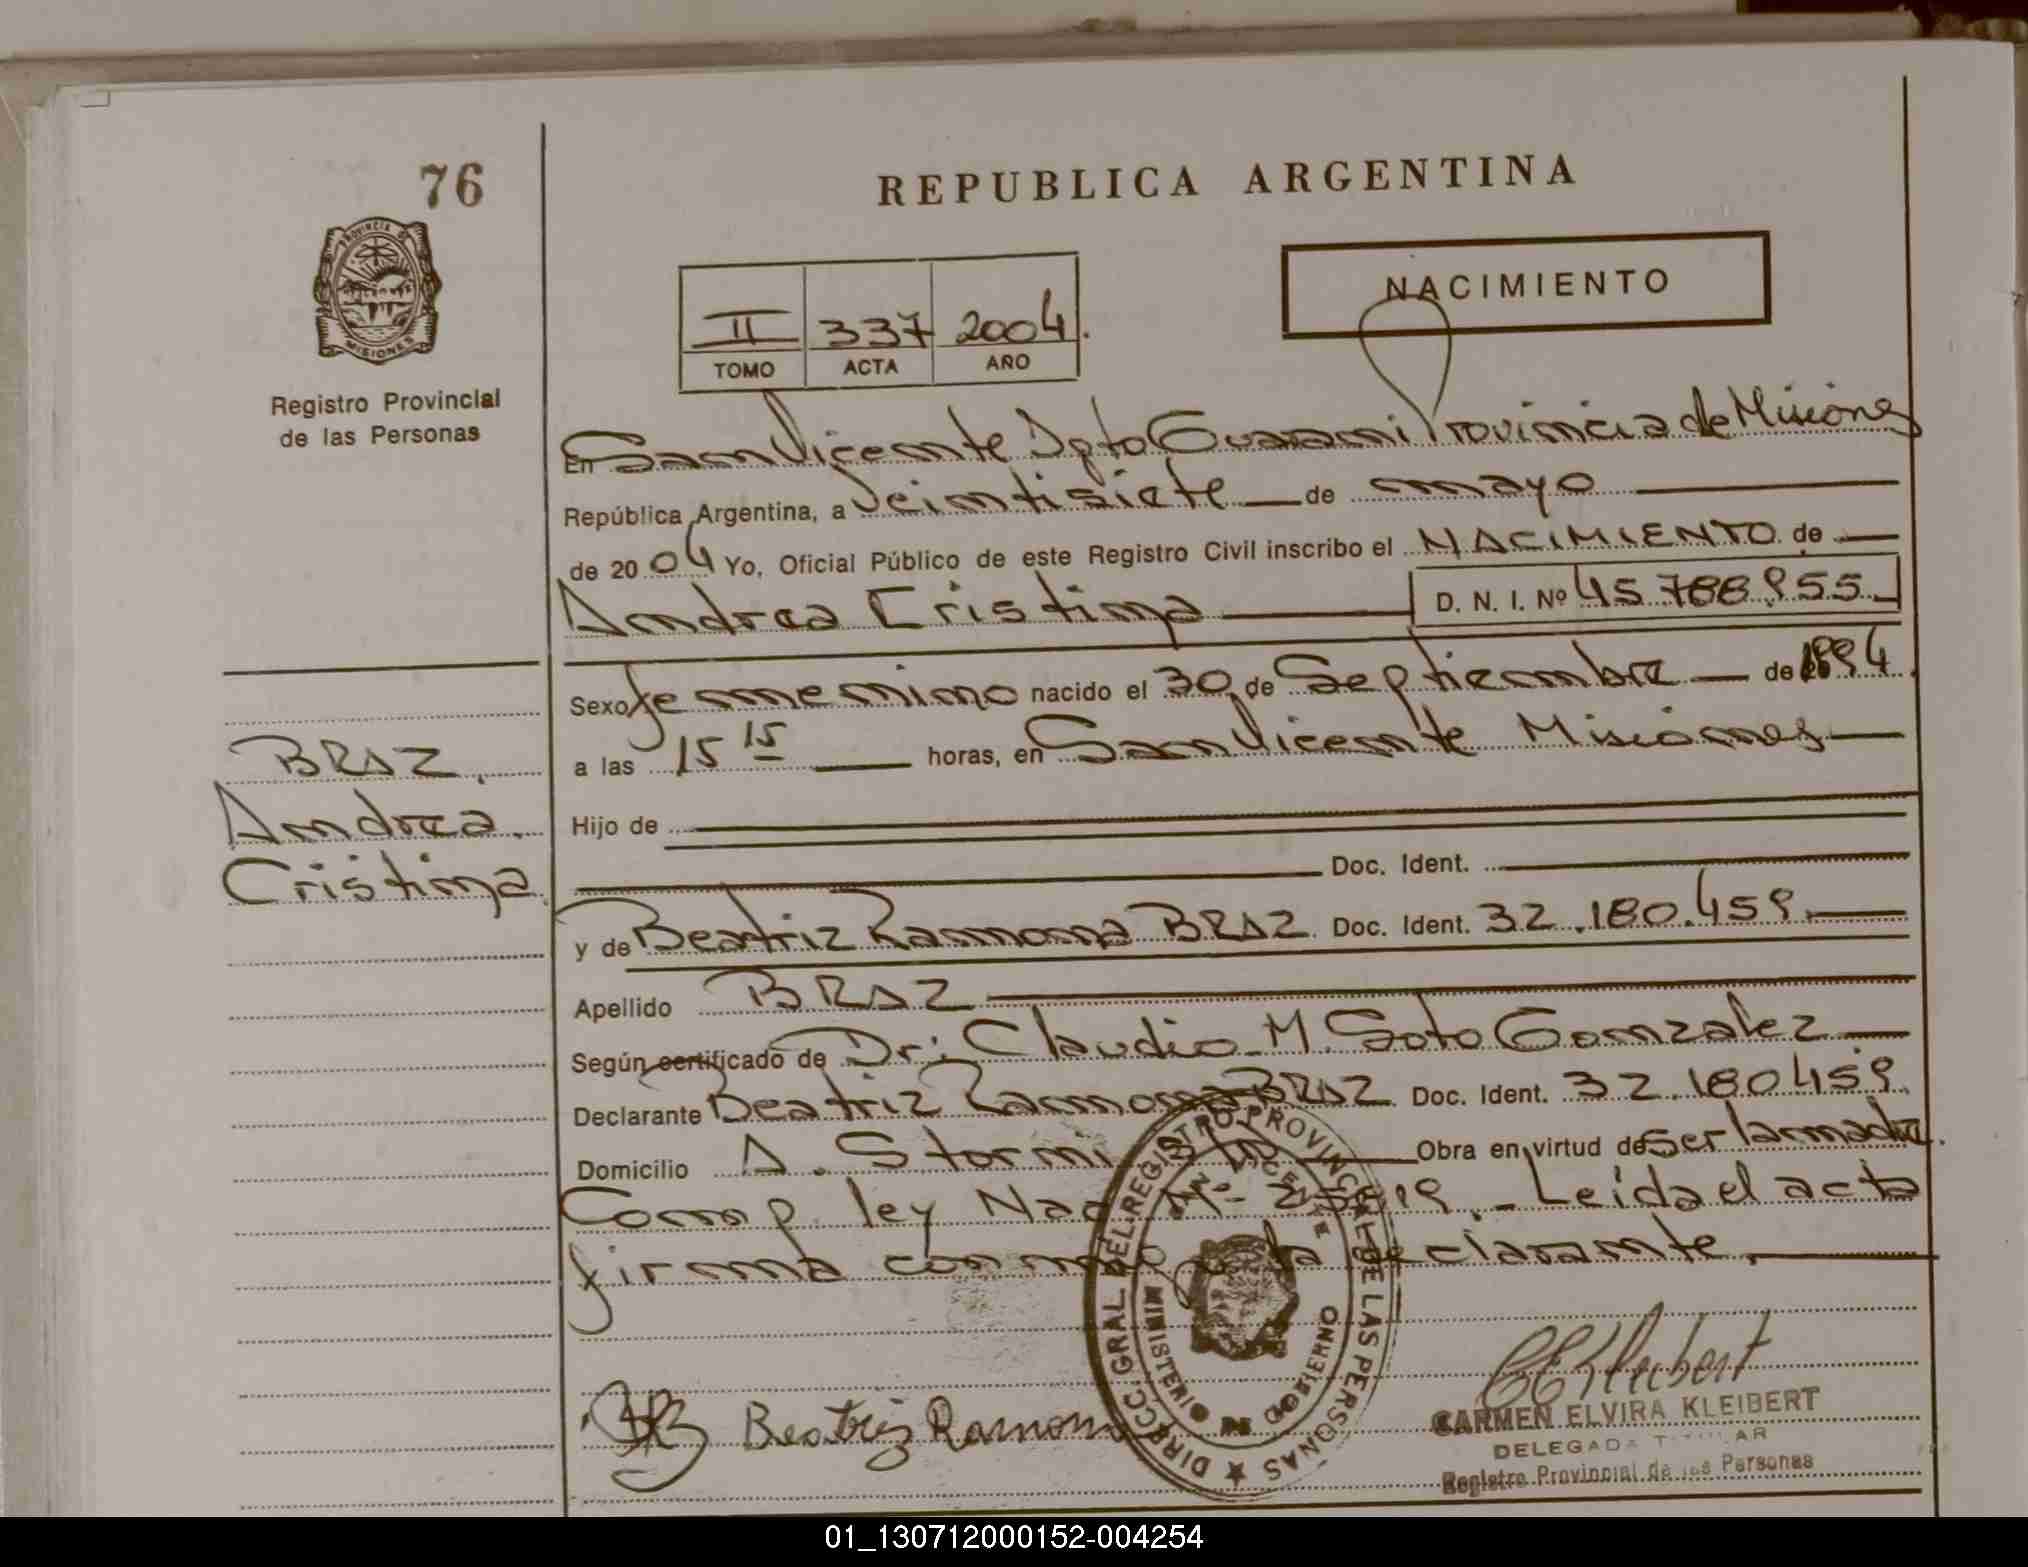 76
REPUBLICA ARGENTINA
PROVINCIA DE
MISIONES
Registro Provincial
de las Personas
NACIMIENTO
II 337 2004.
TOMO ACTA AÑO
En San Vicente Dpto Guarani Provincia de Misiones
República Argentina, a veintisiete de mayo
de 2004 Yo, Oficial Público de este Registro Civil inscribo el NACIMIENTO de
Andrea Cristina D. N. I. Nº 45.788.955
Sexo femenino nacido el 30 de Septiembre de 1994.
a las 15 15 horas, en San Vicente Misiones
BRAZ.
Andrea
Cristina
Hijo de
Doc. Ident.
y de Beatriz Ramona BRAZ Doc. Ident. 32.180.459.
Apellido BRAZ
Según certificado de Dr. Claudio M. Soto Gonzalez
Declarante Beatriz Ramona BRAZ Doc. Ident. 32.180.459.
Domicilio A. Storni Obra en virtud de ser la madre.
Comp. ley Nac Nº 25819.- Leída el acta
firma conmigo la declarante.
DIRECC. GRAL DEL REGISTRO PROVINCIAL DE LAS PERSONAS
SAN VICENTE
MINISTERIO DE GOBIERNO
Beatriz Ramona
CARMEN ELVIRA KLEIBERT
DELEGADA TITULAR
Registro Provincial de las Personas
01_130712000152-004254